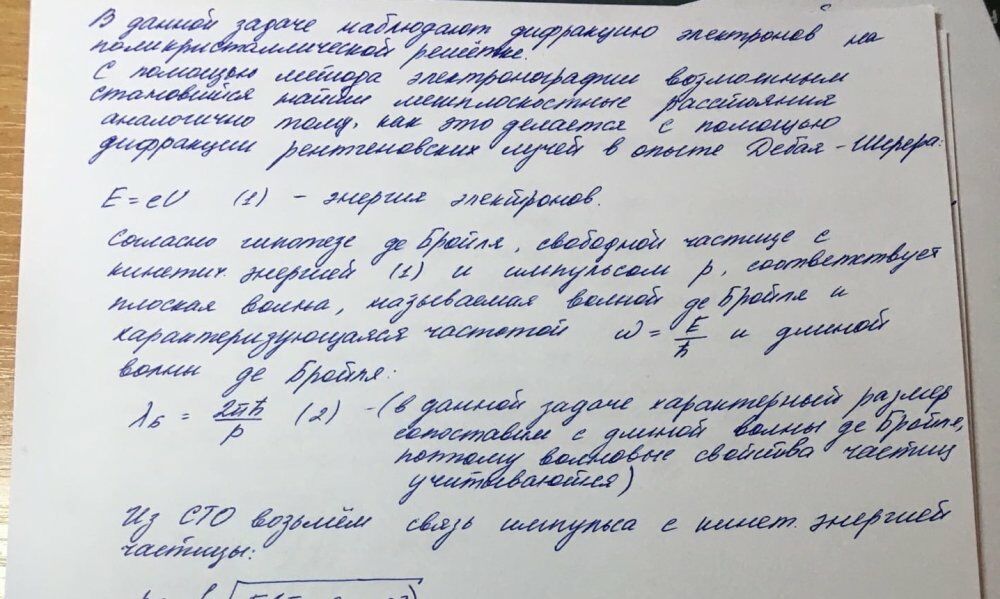 В данной задаче наблюдают дифракцию электронов на
поликристаллической решётке.
С помощью метода электронографии возможным
становится найти межплоскостные расстояния
аналогично тому, как это делается с помощью
дифракции рентгеновских лучей в опыте Дебая-Шерера:
E = eU (1) - энергия электронов.
Согласно гипотезе де Бройля, свободной частице с
кинетич. энергией (1) и импульсом p, соответствует
плоская волна, называемая волной де Бройля и
характеризующаяся частотой ω = E/ħ и длиной
волны де Бройля:
λ_Б = 2πħ/p (2) - (в данной задаче характерный размер
сопоставим с длиной волны де Бройля,
поэтому волновые свойства частиц
учитываются)
Из СТО возьмём связь импульса с кинет. энергией
частицы: